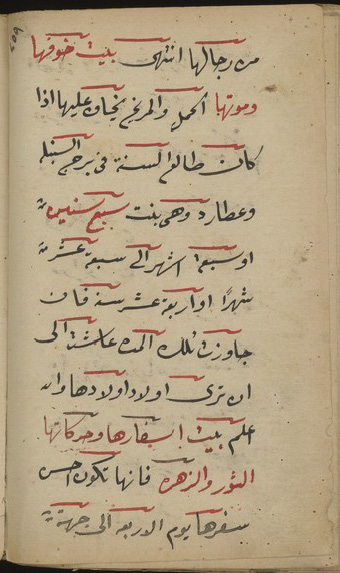 من رجالها انتهى بيت خوفها
وموتها الحمل والمريخ يخاف عليها اذا
كان طالع السنة في برج السنبله
وعطارد وهي بنت سبع سنين
او سبعة اشهر الى سبعة عشرة
شهرًا او اربعة عشر سنة فان
جاوزت تلك المده عاشت الى
ان ترى اولاد اولادها والله
اعلم بيت اسفارها وحركاتها
الثور والزهره فانها تكون احسن
سفرها يوم الاربعه الى جهة